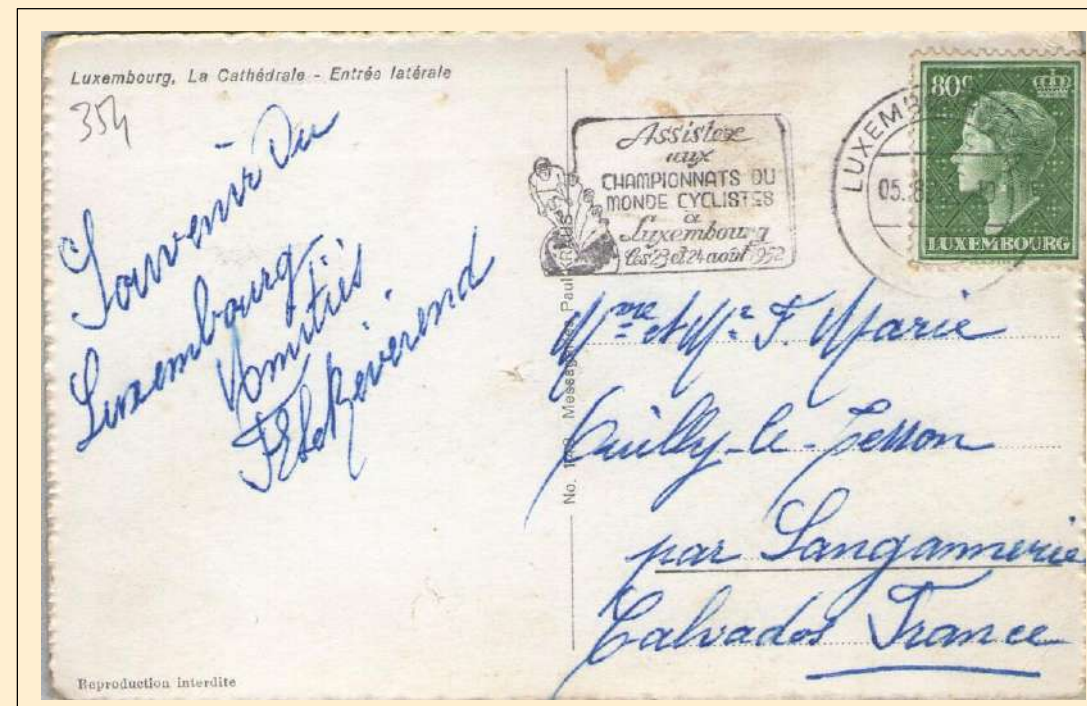 Luxembourg, La Cathédrale - Entrée latérale
354
Souvenir du
Luxembourg
Amitiés
Assistez
aux
CHAMPIONNATS DU
MONDE CYCLISTES
à
Luxembourg
les 23 et 24 août 1952
LUXEMB
05.8
80c
LUXEMBOURG
No. Messageries Paul KRAUS
Mme et Mr F. Marie
Ouilly-le-Tesson
par Langannerie
Calvados France
Reproduction interdite